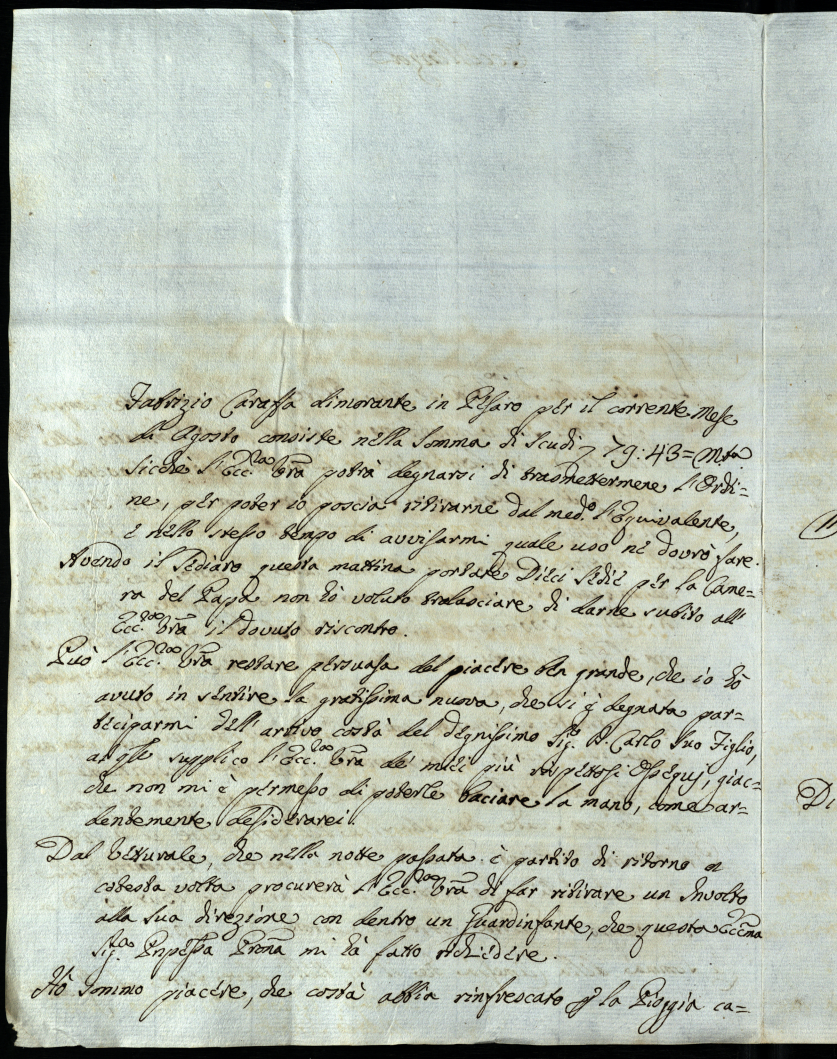 Fabrizio Caraffa dimorante in Pesaro per il corrente Mese
di Agosto consiste nella Somma di Scudi 79:43= M.ta
Sicchè l'Ecc.za Vra potrà degnarsi di trasmettermene l'Ordi=
ne, per poter io poscia ritirarne dal med.o l'Equivalente,
e nello stesso tempo di avvisarmi quale uso ne dovrò fare.
Avendo il Sediaro questa mattina portate Dieci Sedie per la Came=
ra del Papa non hò voluto tralasciare di darne subito all'
Ecc.za Vra il dovuto riscontro.
Può l'Ecc.za Vra restare persuasa del piacere ben grande, che io hò
avuto in sentire la gratissima nuova, che si è degnata par=
teciparmi dell'arrivo costà del degnissimo Sig.r D. Carlo Suo Figlio,
al qle supplico l'Ecc.za Vra de' miei più rispettosi Ossequj, giac=
che non mi è permesso di poterle baciare la mano, come ar=
dentemente desiderarei.
Dal Vetturale, che nella notte passata è partito di ritorno a
cotesta volta procurerà l'Ecc.za Vra di far ritirare un Involto
alla Sua direzione con dentro un Guardinfante, che questa Eccma
Sig.ra Pnpessa Prona mi hà fatto richiedere.
Hò Sommo piacere, che costà abbia rinfrescato p la Pioggia ca=
Di